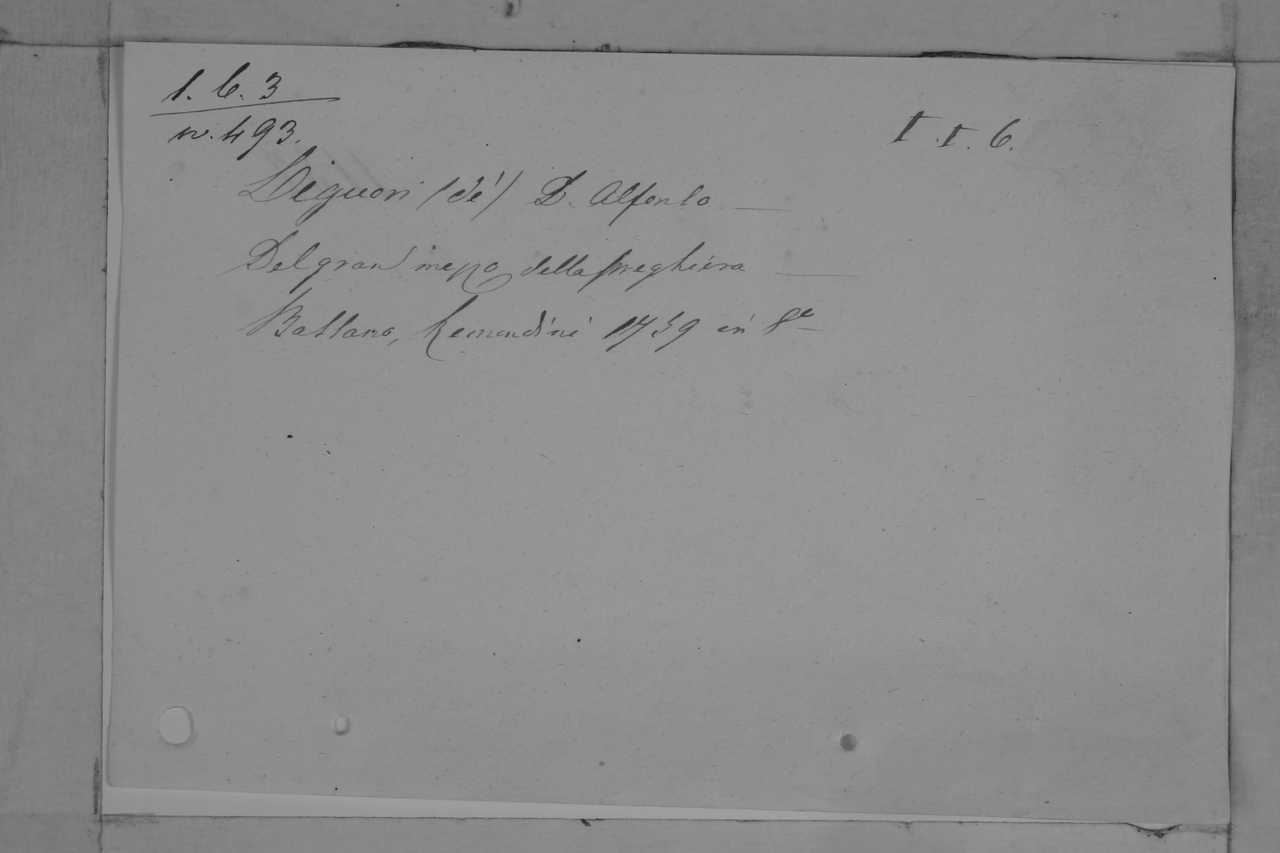 1. 6. 3
n. 493.
I. I. 6.
Liguori (de') D. Alfonso
Del gran mezzo della preghiera
Bassano, Remondini 1759 in 8º